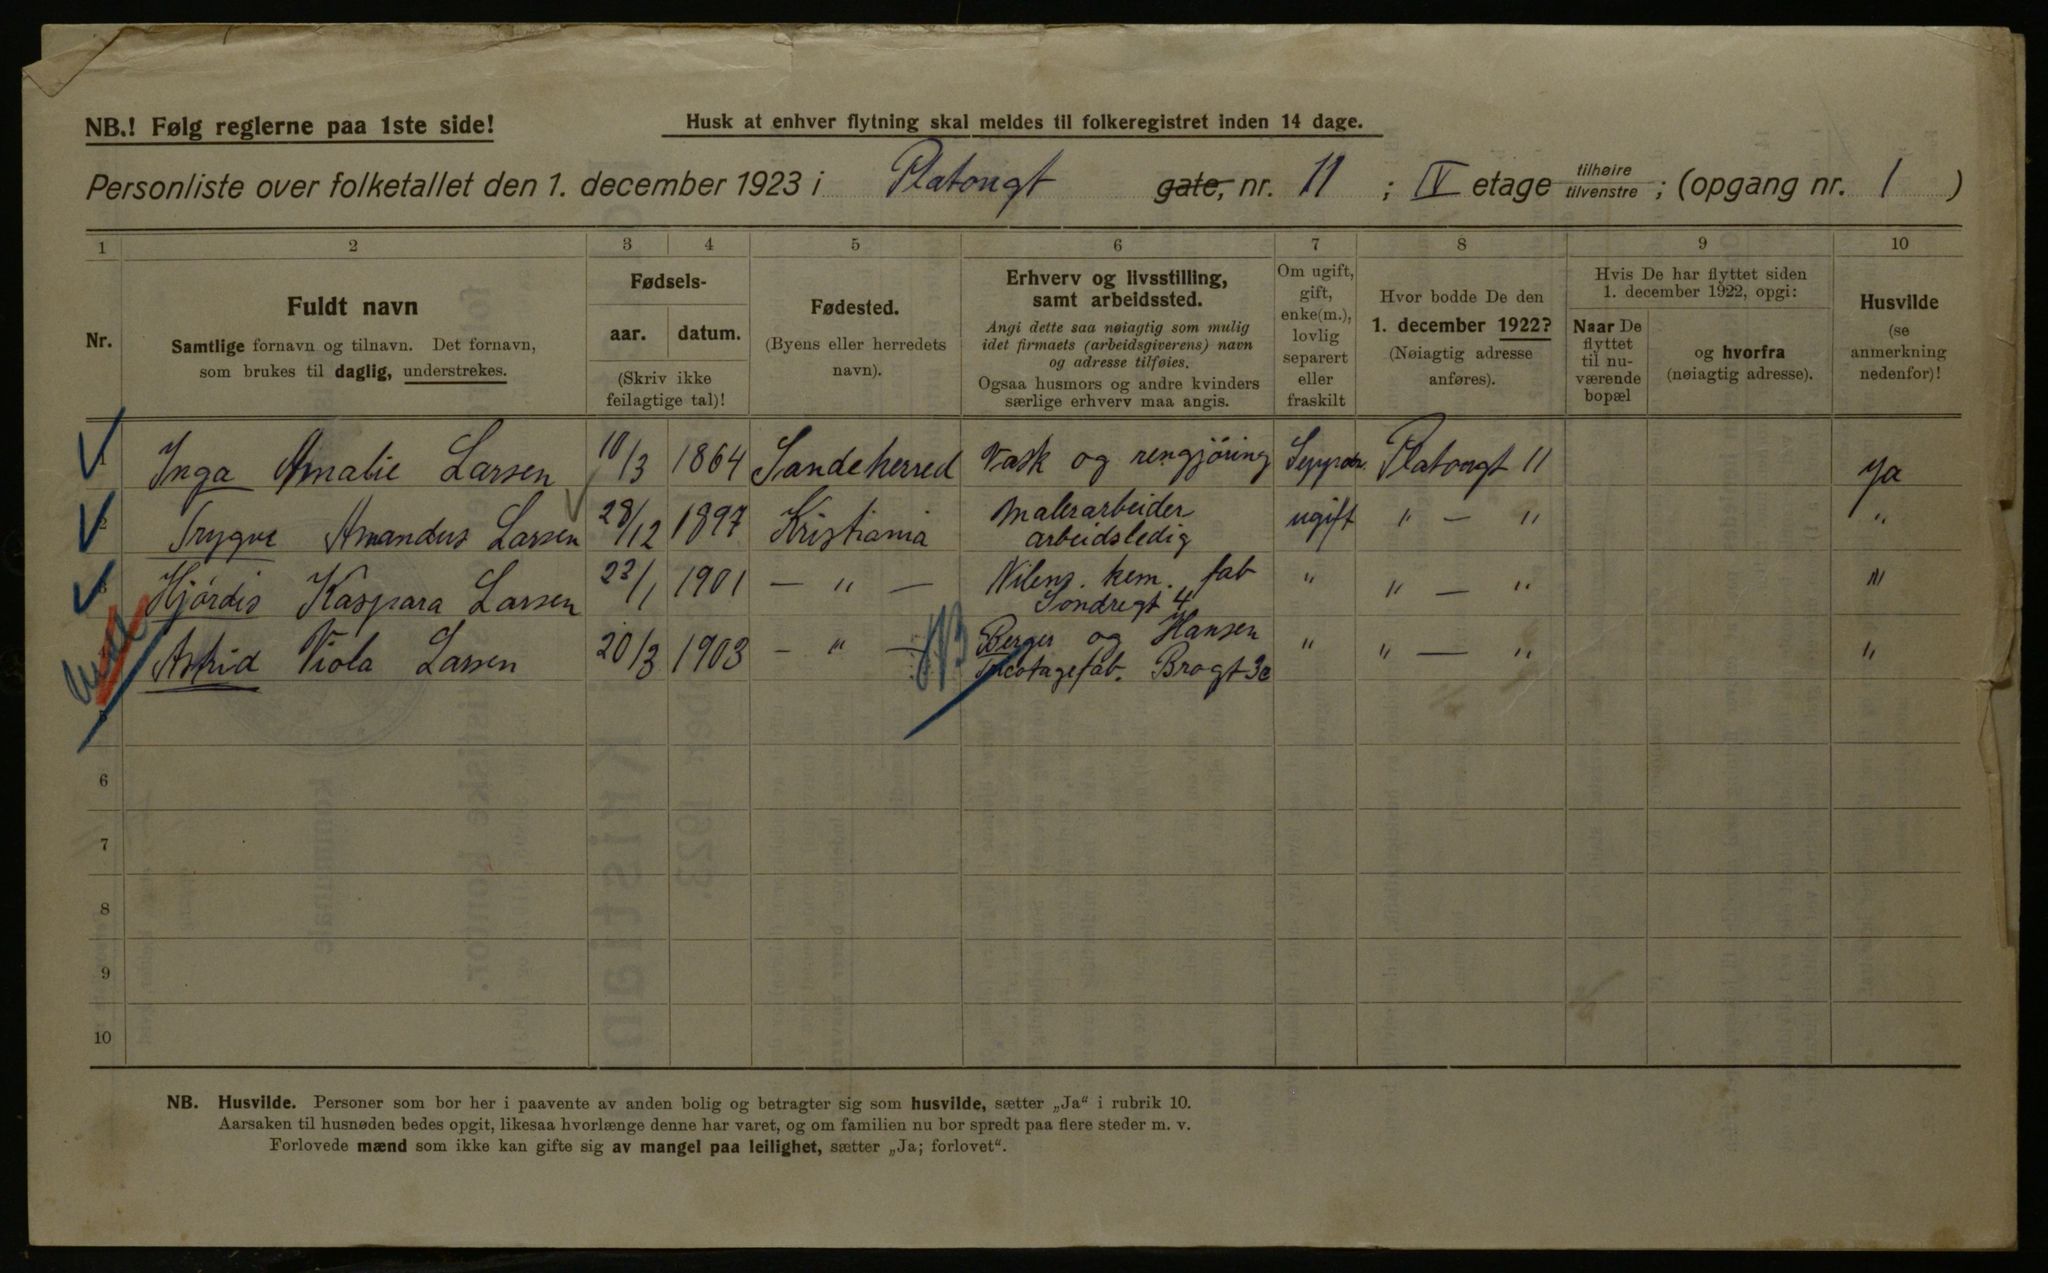 NB.! Følg reglerne paa 1ste side!
Husk at enhver flytning skal meldes til folkeregistret inden 14 dage.
Personliste over folketallet den 1. december 1923 i Platongt gate, nr. 11 ; IV etage tilhøire tilvenstre ; (opgang nr. 1 )
1 2 3 4 5 6 7 8 9 10
Nr.
Fuldt navn
Samtlige fornavn og tilnavn. Det fornavn,
som brukes til daglig, understrekes.
Fødsels-
aar. datum.
(Skriv ikke
feilagtige tal)!
Fødested.
(Byens eller herredets
navn).
Erhverv og livsstilling,
samt arbeidssted.
Angi dette saa nøiagtig som mulig
idet firmaets (arbeidsgiverens) navn
og adresse tilføies.
Ogsaa husmors og andre kvinders
særlige erhverv maa angis.
Om ugift,
gift,
enke(m.),
lovlig
separert
eller
fraskilt
Hvor bodde De den
1. december 1922?
(Nøiagtig adresse
anføres).
Hvis De har flyttet siden
1. december 1922, opgi:
Naar De
flyttet
til nu-
værende
bopæl
og hvorfra
(nøiagtig adresse).
Husvilde
(se
anmerkning
nedenfor)!
Inga Amalie Larsen 10/3 1864 Sandeherred Vask og rengjøring Platongt 11 Ja
2 Trygve Amandus Larsen 28/12 1897 Kristiania Malerarbeider
arbeidsledig ugift " — " "
3 Hjørdis Kaspara Larsen 23/1 1901 — " — kem. fab
Sondregt 4 " " — " "
4 Astrid Viola Larsen 20/3 1903 — " — Berger og Hansen
Tricotagefab. Brogt 3c " " — " "
5
6
7
8
9
10
NB. Husvilde. Personer som bor her i paavente av anden bolig og betragter sig som husvilde, sætter „Ja“ i rubrik 10.
Aarsaken til husnøden bedes opgit, likesaa hvorlænge denne har varet, og om familien nu bor spredt paa flere steder m. v.
Forlovede mænd som ikke kan gifte sig av mangel paa leilighet, sætter „Ja; forlovet“.